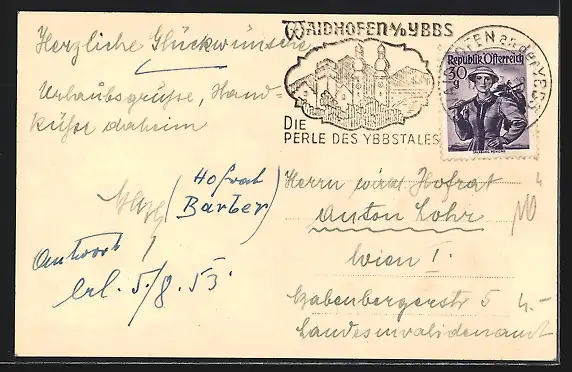 Herzliche Glückwünsche
Urlaubsgrüße, Hand
küße daheim
(Hofrat
Barber)
Antwort
erl. 5/8. 53.
WAIDHOFEN A/D YBBS
DIE
PERLE DES YBBSTALES
WAIDHOFEN an der YBBS
Republik Österreich
30
g
SALZBURG, PONGAU
Herrn wirkl. Hofrat
Anton Lohr
Wien I.
Babenbergerstr 5
Landesinvalidenamt